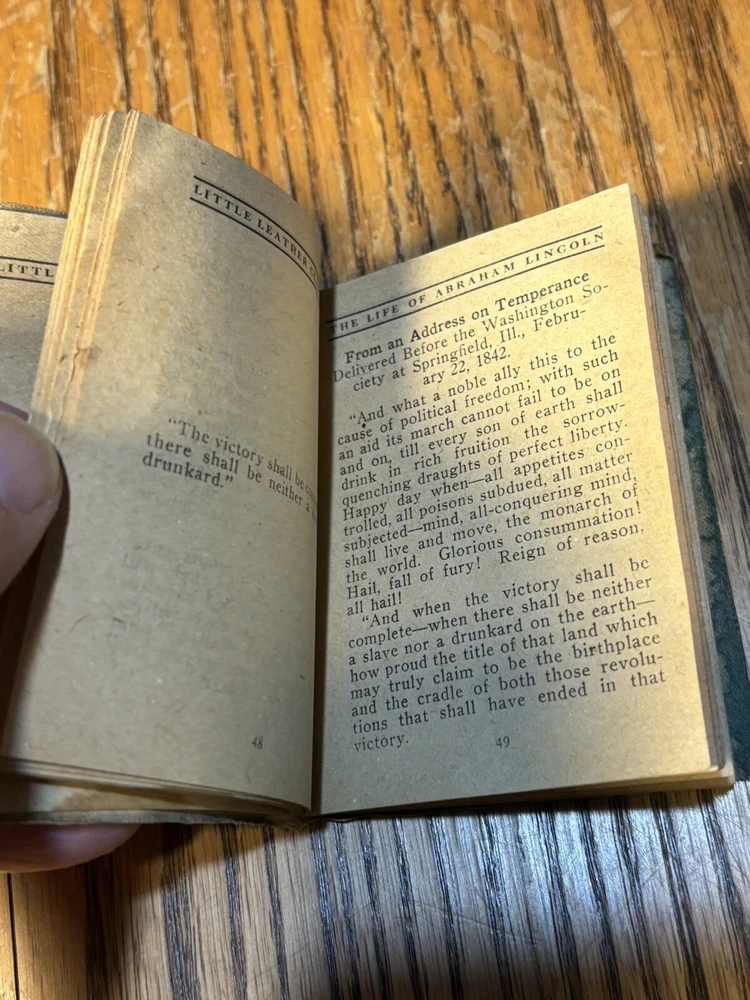 LITTL
LITTLE LEATHER
"The victory shall be
there shall be neither a
drunkard."
48
THE LIFE OF ABRAHAM LINCOLN
From an Address on Temperance
Delivered Before the Washington So-
ciety at Springfield, Ill., Febru-
ary 22, 1842.
"And what a noble ally this to the
cause of political freedom; with such
an aid its march cannot fail to be on
and on, till every son of earth shall
drink in rich fruition the sorrow-
quenching draughts of perfect liberty.
Happy day when—all appetites con-
trolled, all poisons subdued, all matter
subjected—mind, all-conquering mind,
shall live and move, the monarch of
the world. Glorious consummation!
Hail, fall of fury! Reign of reason,
all hail!
"And when the victory shall be
complete—when there shall be neither
a slave nor a drunkard on the earth—
how proud the title of that land which
may truly claim to be the birthplace
and the cradle of both those revolu-
tions that shall have ended in that
victory.
49